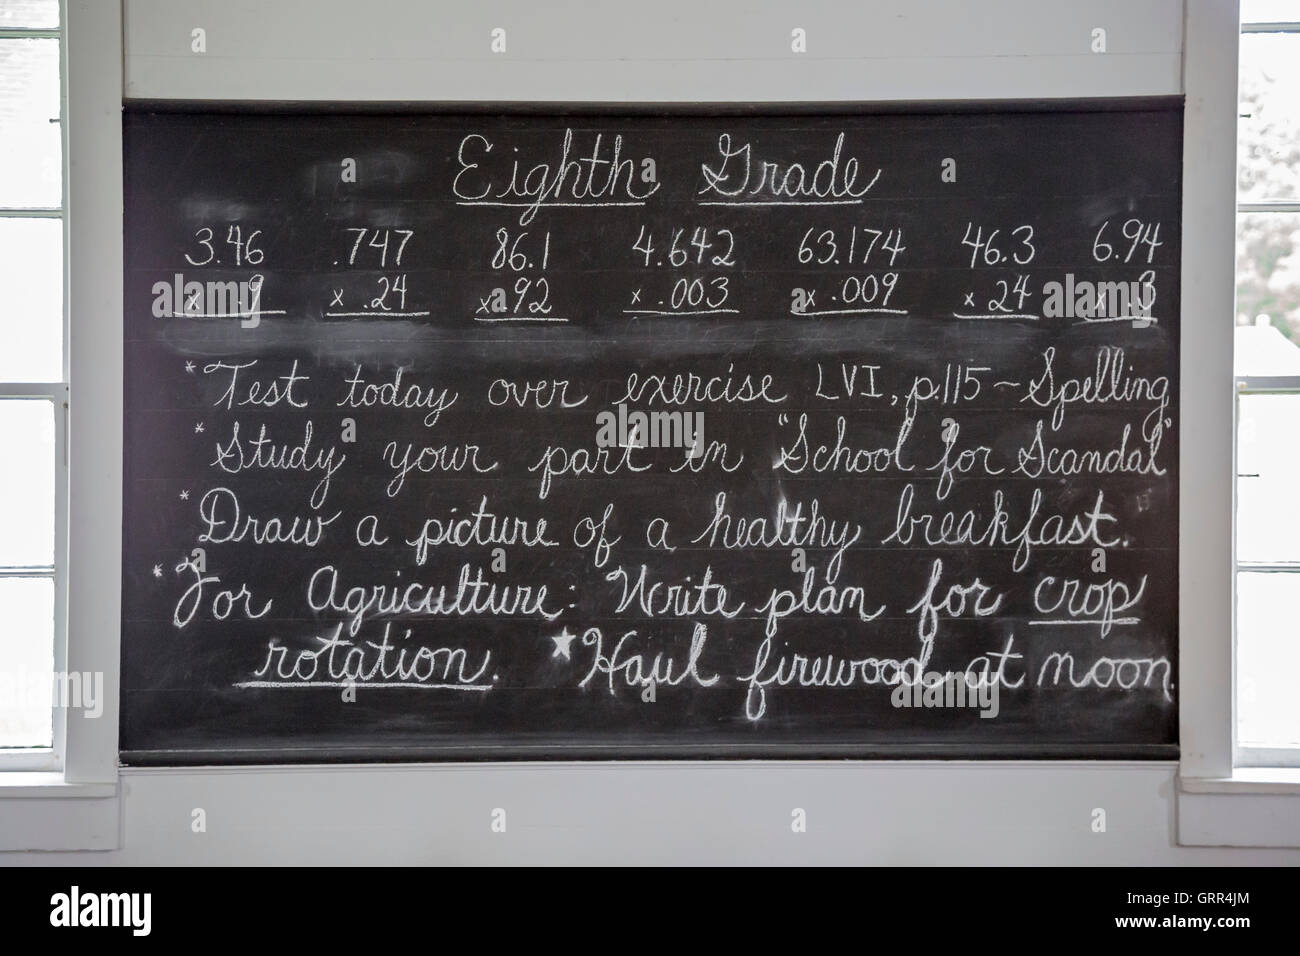 Eighth Grade
3.46 .747 86.1 4.642 63.174 46.3 6.94
x .9 x .24 x .92 x .003 x .009 x 24 x .3
*Test today over exercise LVI, p.115~Spelling
*Study your part in "School for Scandal"
*Draw a picture of a healthy breakfast.
*For Agriculture: Write plan for crop
rotation. ★Haul firewood at noon.
alamy
Image ID: GRR4JM
www.alamy.com